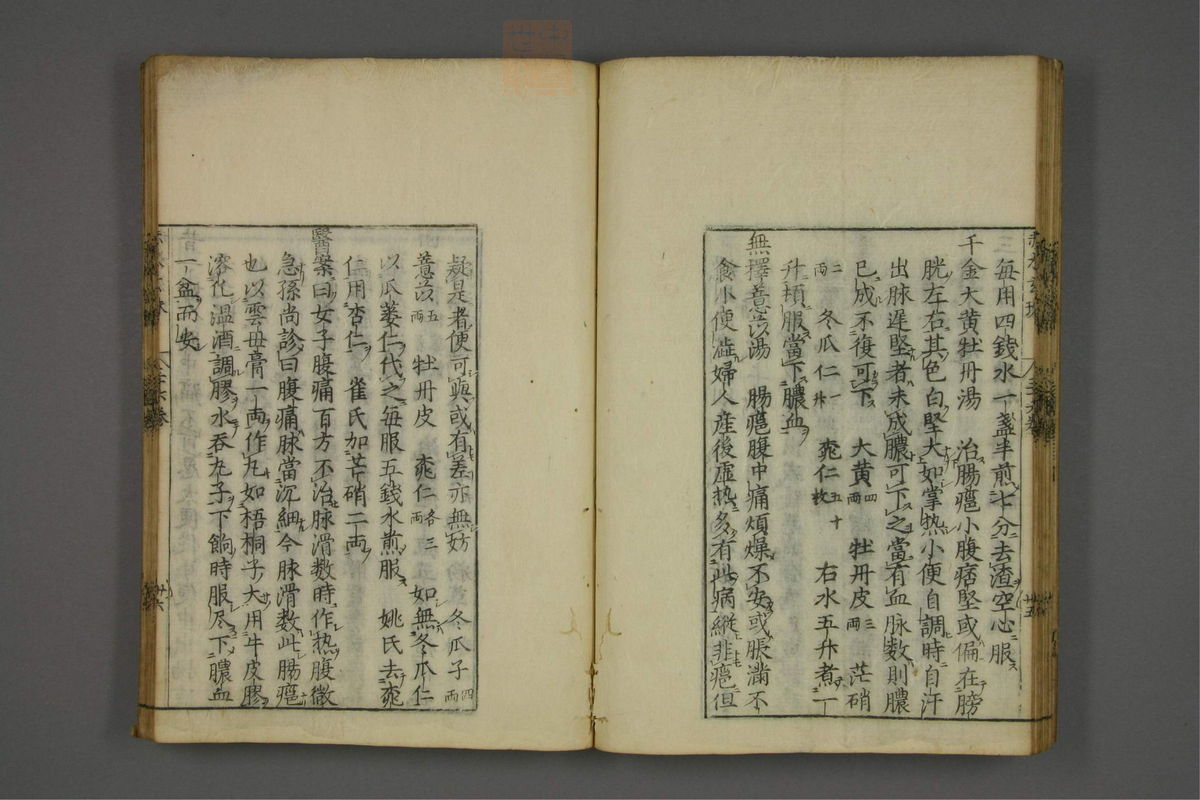 每用四錢水一盞半煎七分去渣空心服
千金大黄牡丹湯　治腸癰小腹痞堅或偏在膀
胱左右其色白堅大如掌熱小便自調時自汗
出脉遲堅者未成膿可下之當有血脉数則膿
已成不復可下　大黄四両　牡丹皮三両　芒硝
二両　冬瓜仁一升　桃仁五十枚　右水五升煮一
升頓服當下膿血
無擇薏苡湯　腸癰腹中痛煩燥不安或脹滿不
食小便澁婦人産後虚热多有此病縦非癰但
疑是者便可與或有差亦無妨　冬瓜子四両
薏苡五両　牡丹皮　桃仁各三両　如無冬瓜仁
以瓜蔞仁代之毎服五錢水煎服　姚氏去桃
仁用杏仁　崔氏加芒硝二両
醫案曰女子腹痛百方不治脉滑数時作热腹微
急孫尚診曰腹痛脉當沉細今脉滑数此腸癰
也以雲母膏一両作丸如梧桐子大用牛皮膠
溶化温酒調膠水吞丸子下餉時服尽下膿血
一盆而安